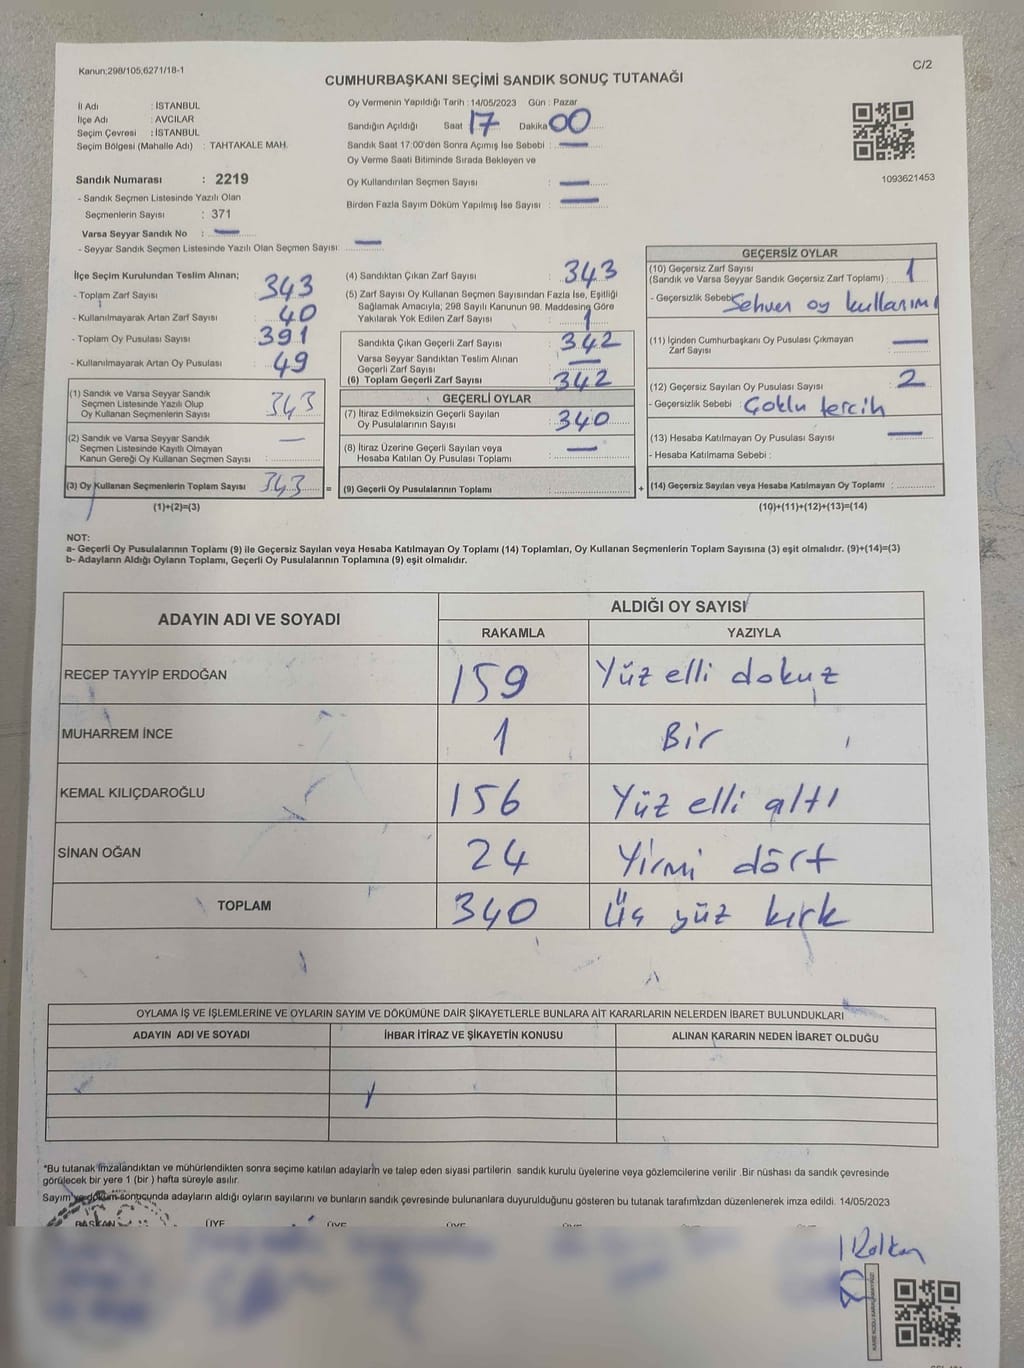 Kanun;298/105,6271/18-1
C/2
CUMHURBAŞKANI SEÇİMİ SANDIK SONUÇ TUTANAĞI
İl Adı : İSTANBUL
İlçe Adı : AVCILAR
Seçim Çevresi : İSTANBUL
Seçim Bölgesi (Mahalle Adı) : TAHTAKALE MAH.
Sandık Numarası : 2219
- Sandık Seçmen Listesinde Yazılı Olan
Seçmenlerin Sayısı : 371
Varsa Seyyar Sandık No : —
- Seyyar Sandık Seçmen Listesinde Yazılı Olan Seçmen Sayısı: —
Oy Vermenin Yapıldığı Tarih : 14/05/2023 Gün : Pazar
Sandığın Açıldığı Saat 17 Dakika 00
Sandık Saat 17.00'den Sonra Açılmış İse Sebebi : —
Oy Verme Saati Bitiminde Sırada Bekleyen ve
Oy Kullandırılan Seçmen Sayısı : —
Birden Fazla Sayım Döküm Yapılmış İse Sayısı : —
1093621453
İlçe Seçim Kurulundan Teslim Alınan;
- Toplam Zarf Sayısı 343
- Kullanılmayarak Artan Zarf Sayısı : 40
- Toplam Oy Pusulası Sayısı : 391
- Kullanılmayarak Artan Oy Pusulası : 49
(1) Sandık ve Varsa Seyyar Sandık
Seçmen Listesinde Yazılı Olup
Oy Kullanan Seçmenlerin Sayısı 343
(2) Sandık ve Varsa Seyyar Sandık
Seçmen Listesinde Kayıtlı Olmayan
Kanun Gereği Oy Kullanan Seçmen Sayısı : —
(3) Oy Kullanan Seçmenlerin Toplam Sayısı 343 =
(1)+(2)=(3)
(4) Sandıktan Çıkan Zarf Sayısı : 343
(5) Zarf Sayısı Oy Kullanan Seçmen Sayısından Fazla İse, Eşitliği
Sağlamak Amacıyla; 298 Sayılı Kanunun 98. Maddesine Göre
Yakılarak Yok Edilen Zarf Sayısı : 1
Sandıkta Çıkan Geçerli Zarf Sayısı : 342
Varsa Seyyar Sandıktan Teslim Alınan
Geçerli Zarf Sayısı : —
(6) Toplam Geçerli Zarf Sayısı : 342
GEÇERLİ OYLAR
(7) İtiraz Edilmeksizin Geçerli Sayılan
Oy Pusulalarının Sayısı : 340
(8) İtiraz Üzerine Geçerli Sayılan veya
Hesaba Katılan Oy Pusulası Toplamı : —
(9) Geçerli Oy Pusulalarının Toplamı : +
GEÇERSİZ OYLAR
(10) Geçersiz Zarf Sayısı
(Sandık ve Varsa Seyyar Sandık Geçersiz Zarf Toplamı) : 1
- Geçersizlik Sebebi: Sehven oy kullanımı
(11) İçinden Cumhurbaşkanı Oy Pusulası Çıkmayan
Zarf Sayısı : —
(12) Geçersiz Sayılan Oy Pusulası Sayısı : 2
- Geçersizlik Sebebi : Çoklu tercih
(13) Hesaba Katılmayan Oy Pusulası Sayısı : —
- Hesaba Katılmama Sebebi :
(14) Geçersiz Sayılan veya Hesaba Katılmayan Oy Toplamı :
(10)+(11)+(12)+(13)=(14)
NOT:
a- Geçerli Oy Pusulalarının Toplamı (9) ile Geçersiz Sayılan veya Hesaba Katılmayan Oy Toplamı (14) Toplamları, Oy Kullanan Seçmenlerin Toplam Sayısına (3) eşit olmalıdır. (9)+(14)=(3)
b- Adayların Aldığı Oyların Toplamı, Geçerli Oy Pusulalarının Toplamına (9) eşit olmalıdır.
ADAYIN ADI VE SOYADI ALDIĞI OY SAYISI
RAKAMLA YAZIYLA
RECEP TAYYİP ERDOĞAN 159 Yüz elli dokuz
MUHARREM İNCE 1 Bir
KEMAL KILIÇDAROĞLU 156 Yüz elli altı
SİNAN OĞAN 24 Yirmi dört
TOPLAM 340 Üç yüz kırk
OYLAMA İŞ VE İŞLEMLERİNE VE OYLARIN SAYIM VE DÖKÜMÜNE DAİR ŞİKAYETLERLE BUNLARA AİT KARARLARIN NELERDEN İBARET BULUNDUKLARI
ADAYIN ADI VE SOYADI İHBAR İTİRAZ VE ŞİKAYETİN KONUSU ALINAN KARARIN NEDEN İBARET OLDUĞU
*Bu tutanak imzalandıktan ve mühürlendikten sonra seçime katılan adayların ve talep eden siyasi partilerin sandık kurulu üyelerine veya gözlemcilerine verilir .Bir nüshası da sandık çevresinde
görülecek bir yere 1 (bir ) hafta süreyle asılır.
Sayım ve döküm sonucunda adayların aldığı oyların sayılarını ve bunların sandık çevresinde bulunanlara duyurulduğunu gösteren bu tutanak tarafımızdan düzenlenerek imza edildi. 14/05/2023
BAŞKAN ÜYE ÜYE ÜYE ÜYE